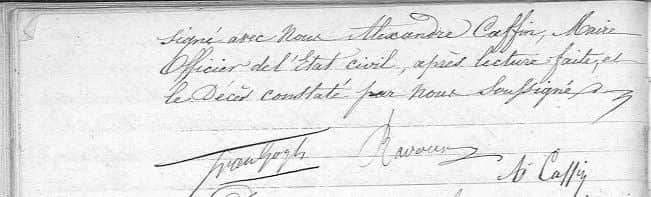 signé avec Nous Alexandre Caffin, Maire
Officier de l'Etat civil, après lecture faite, et
le Décès constaté par Nous Soussigné
TvanGogh Ravoux A. Caffin